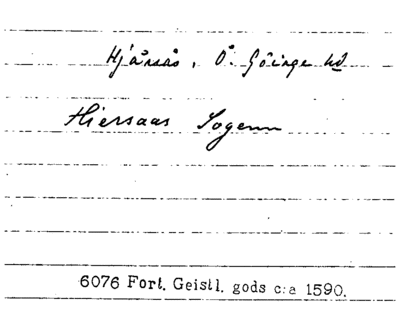 Hjärsås, Ö. Göinge hd
Hiersaas Sogenn
6076 Fort. Geistl. gods c:a 1590.